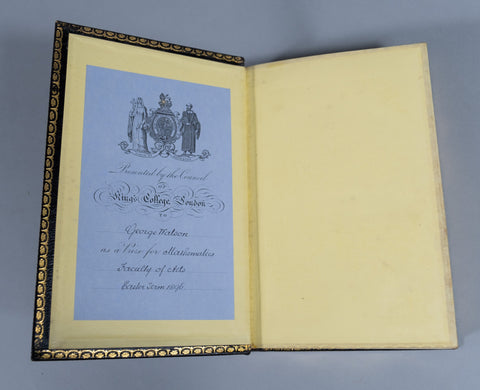 Presented by the Council
OF
King's College, London
TO
George Watson
as a Prize for Mathematics
Faculty of Arts
Easter Term 1896.